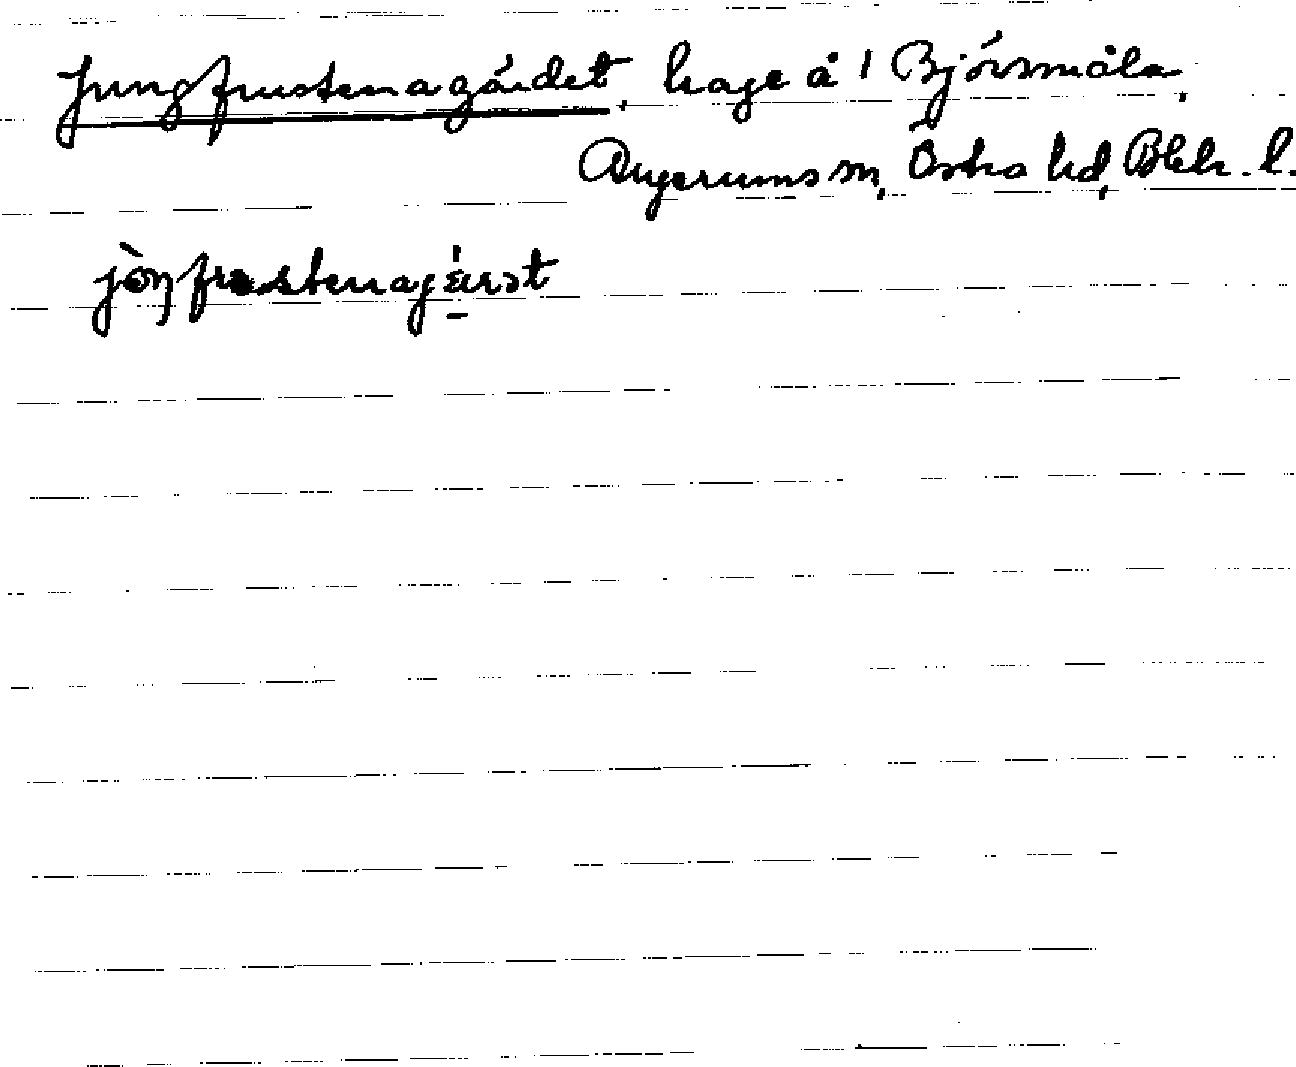 Jungfrustenagärdet, hage å 1 Björsmåla,
Augerums sn, Östra hd, Blek. l.